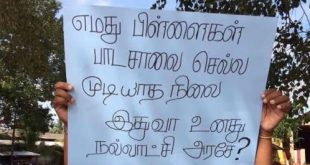 எமது பிள்ளைகள்
பாடசாலை செல்ல
முடியாத நிலை
இதுவா உனது
நல்லாட்சி அரசே?